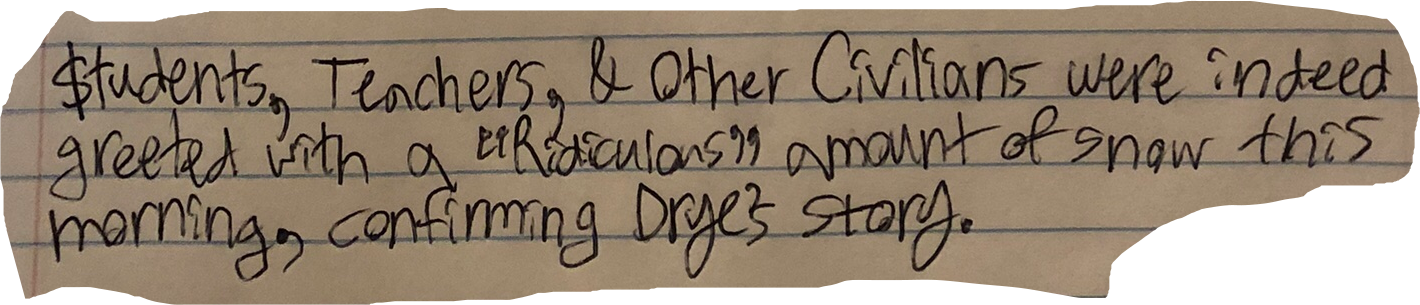 Students, Teachers, & Other Civilians were indeed
greeted with a "Ridiculous" amount of snow this
morning, confirming Drye's story.